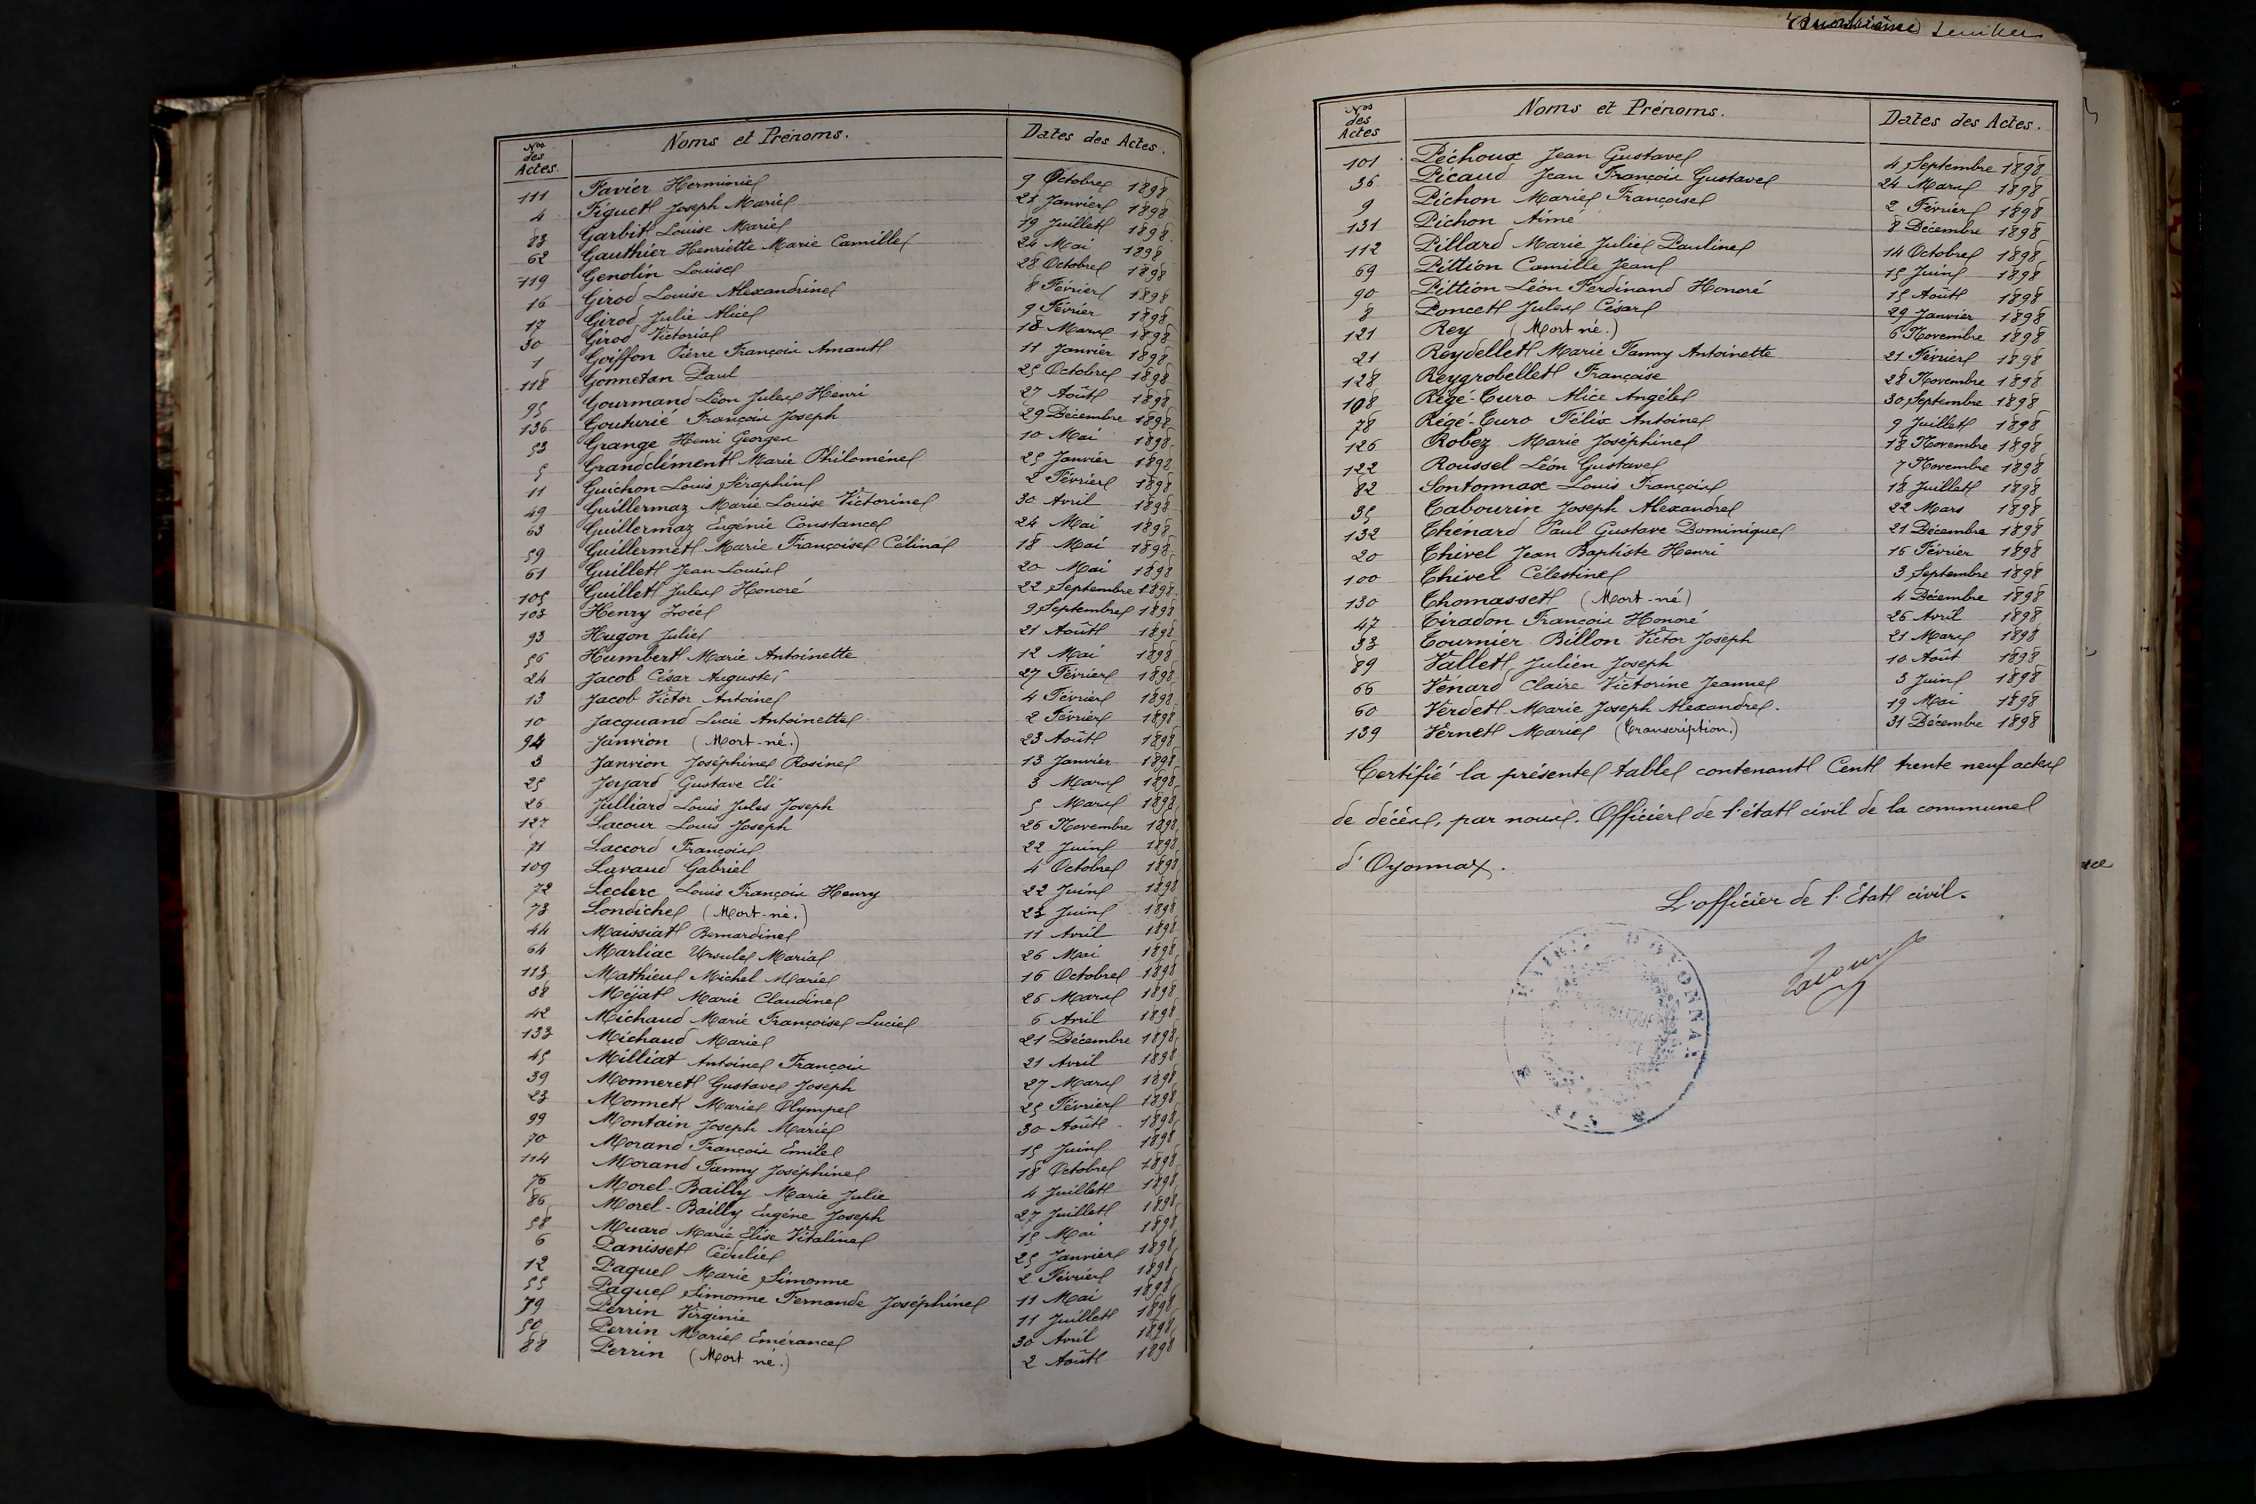 Nos des Actes. Noms et Prénoms. Dates des Actes.
111 Favier Herminie 9 Octobre 1898
4 Figuet Joseph Marie 21 Janvier 1898
83 Garbit Louise Marie 19 Juillet 1898
62 Gauthier Henriette Marie Camille 24 Mai 1898
119 Genolin Louise 28 Octobre 1898
16 Girod Louise Alexandrine 8 Février 1898
17 Girod Julie Alice 9 Février 1898
30 Girod Victoria 18 Mars 1898
1 Goiffon Pierre François Amant 11 Janvier 1898
118 Gonnetan Paul 25 Octobre 1898
95 Gourmand Léon Jules Henri 27 Août 1898
136 Gouturié François Joseph 29 Décembre 1898
53 Grange Henri Georges 10 Mai 1898
5 Grandclément Marie Philomène 25 Janvier 1898
11 Guichon Louis Séraphin 2 Février 1898
49 Guillermaz Marie Louise Victorine 30 Avril 1898
63 Guillermaz Eugénie Constance 24 Mai 1898
59 Guillermet Marie Françoise Célina 18 Mai 1898
61 Guillet Jean Louis 20 Mai 1898
105 Guillet Jules Honoré 22 Septembre 1898
103 Henry 9 Septembre 1898
93 Hugon Julie 21 Août 1898
56 Humbert Marie Antoinette 12 Mai 1898
24 Jacob César Auguste 27 Février 1898
13 Jacob Victor Antoine 4 Février 1898
10 Jacquand Lucie Antoinette 2 Février 1898
94 Janvion (Mort-né.) 23 Août 1898
3 Janvion Joséphine Rosine 13 Janvier 1898
25 Joyard Gustave Eli 3 Mars 1898
26 Julliard Louis Jules Joseph 5 Mars 1898
127 Lacour Louis Joseph 26 Novembre 1898
71 Laccord François 22 Juin 1898
109 Lavaud Gabriel 4 Octobre 1898
72 Leclerc Louis François Henry 22 Juin 1898
73 Londiche (Mort-né.) 23 Juin 1898
44 Maissiat Bernardine 11 Avril 1898
64 Marliac Ursule Maria 26 Mai 1898
113 Mathieu Michel Marie 16 Octobre 1898
38 Méjat Marie Claudine 26 Mars 1898
42 Michaud Marie Françoise Lucie 6 Avril 1898
133 Michaud Marie 21 Décembre 1898
45 Milliat Antoine François 21 Avril 1898
39 Monneret Gustave Joseph 27 Mars 1898
23 Monnet Marie Olympe 25 Février 1898
99 Montain Joseph Marie 30 Août 1898
70 Morand François Emile 15 Juin 1898
114 Morand Fanny Joséphine 18 Octobre 1898
76 Morel-Bailly Marie Julie 4 Juillet 1898
86 Morel-Bailly Eugène Joseph 27 Juillet 1898
58 Muard Marie Elise Vitaline 15 Mai 1898
6 Panisset Cédulie 25 Janvier 1898
12 Paquel Marie Simonne 2 Février 1898
55 Paquel Simonne Fernande Joséphine 11 Mai 1898
79 Perrin Virginie 11 Juillet 1898
50 Perrin Marie Emérance 30 Avril 1898
88 Perrin (Mort né.) 2 Août 1898
Nos des Actes Noms et Prénoms. Dates des Actes.
101 Péchoux Jean Gustave 4 Septembre 1898
36 Picaud Jean François Gustave 24 Mars 1898
9 Pichon Marie Françoise 2 Février 1898
131 Pichon Aimé 8 Décembre 1898
112 Pillard Marie Julie Pauline 14 Octobre 1898
69 Pittion Camille Jean 15 Juin 1898
90 Pittion Léon Ferdinand Honoré 15 Août 1898
8 Poncet Jules César 29 Janvier 1898
121 Rey (Mort né.) 6 Novembre 1898
21 Reydellet Marie Fanny Antoinette 21 Février 1898
128 Reygrobellet Françoise 28 Novembre 1898
108 Régé-Turo Alice Angèle 30 Septembre 1898
78 Régé-Turo Félix Antoine 9 Juillet 1898
126 Robez Marie Joséphine 18 Novembre 1898
122 Roussel Léon Gustave 7 Novembre 1898
82 Sontonnax Louis François 18 Juillet 1898
35 Tabourin Joseph Alexandre 22 Mars 1898
132 Thénard Paul Gustave Dominique 21 Décembre 1898
20 Thivel Jean Baptiste Henri 16 Février 1898
100 Thivel Célestine 3 Septembre 1898
130 Thomasset (Mort-né) 4 Décembre 1898
47 Tiradon François Honoré 26 Avril 1898
33 Tournier Billon Victor Joseph 21 Mars 1898
89 Vallet Julien Joseph 10 Août 1898
66 Vénard Claire Victorine Jeanne 3 Juin 1898
60 Verdet Marie Joseph Alexandre. 19 Mai 1898
139 Vernet Marie (Transcription.) 31 Décembre 1898
Certifié la présente table contenant Cent trente neuf actes
de décès, par nous, Officier de l'état civil de la commune
d'Oyonnax.
L'officier de l'Etat civil.
MAIRIE D'OYONNAX